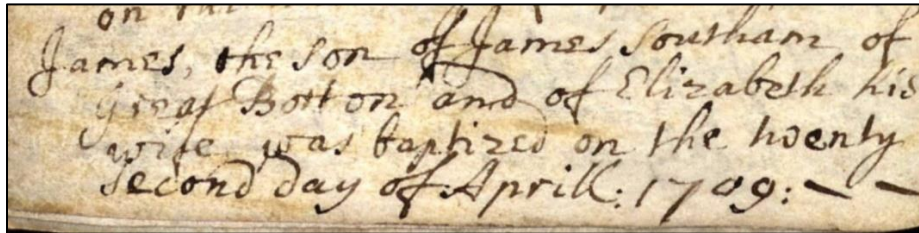 on the
James, the son of James Southam of
Great Botton and of Elizabeth his
wife was baptized on the twenty
second day of Aprill: 1709: — —